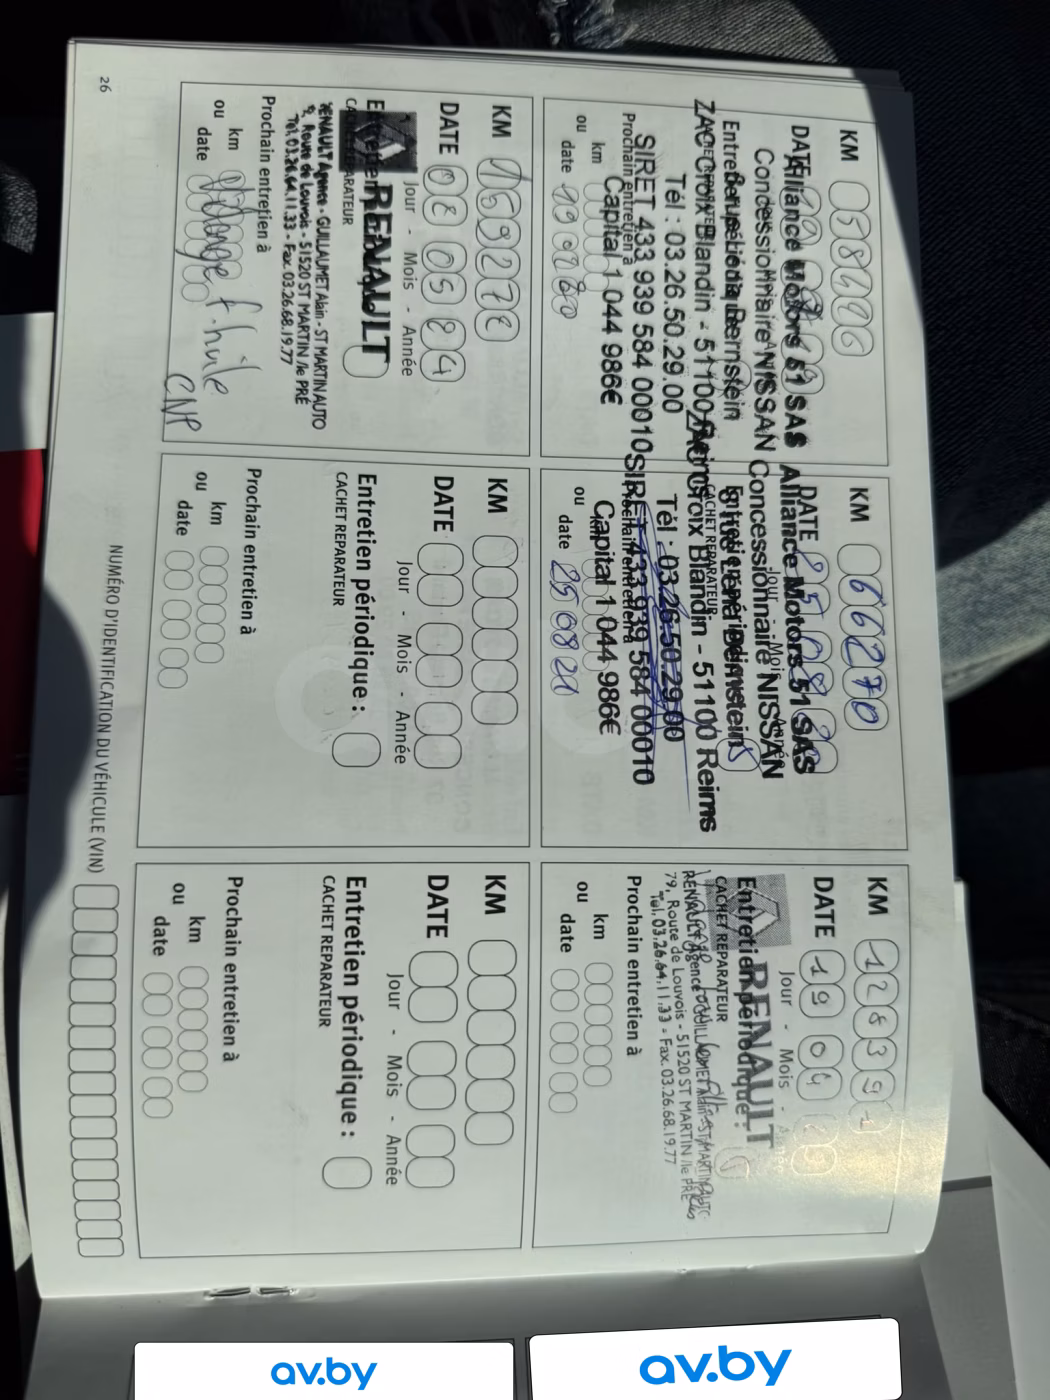 KM 58426
DATE
Alliance Motors 51 SAS
Concessionnaire NISSAN
ZAC Croix Blandin - 51100 Reims
Tél : 03.26.50.29.00
SIRET 433 939 584 00010
Capital 1 044 986€
Prochain entretien à
km
ou
date
KM 66270
DATE 25 08 20
Jour - Mois
Alliance Motors 51 SAS
Concessionnaire NISSAN
CACHET REPARATEUR
Croix Blandin - 51100 Reims
Tél : 03.26.50.29.00
SIRET 433 939 584 00010
Capital 1 044 986€
ou
date 25 08 21
KM
DATE 19 04
Jour - Mois -
RENAULT
Entretien périodique :
CACHET REPARATEUR
RENAULT Agence
79, Route de Louvois - 51520 ST MARTIN /le PRE
Tél. 03.26.64.11.33 - Fax. 03.26.68.19.77
Prochain entretien à
km
ou
date
KM 159272
DATE 02 05 24
Jour - Mois - Année
RENAULT
CACHET REPARATEUR
RENAULT Agence - GUILLAUMET Alain - ST MARTIN AUTO
Route de Louvois - 51520 ST MARTIN /le PRÉ
Tél. 03.26.64.11.33 - Fax. 03.26.68.19.77
Prochain entretien à
km
ou
date
KM
DATE
Jour - Mois - Année
Entretien périodique :
CACHET REPARATEUR
Prochain entretien à
km
ou
date
KM
DATE
Jour - Mois - Année
Entretien périodique :
CACHET REPARATEUR
Prochain entretien à
km
ou
date
26
NUMÉRO D'IDENTIFICATION DU VÉHICULE (VIN)
av.by
av.by